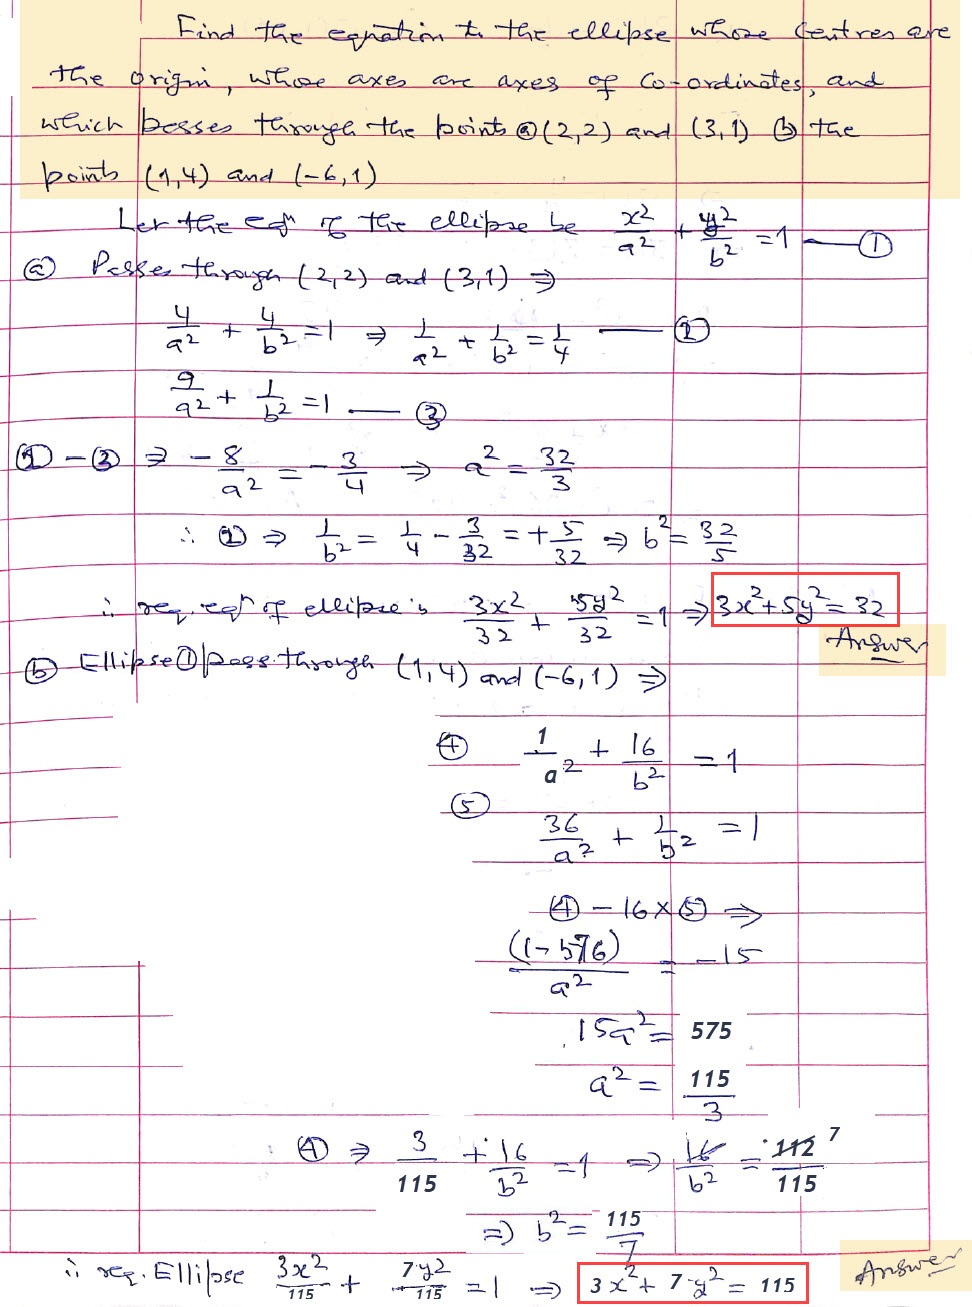 Find the equation to the ellipse whose centres are
the origin, whose axes are axes of co-ordinates, and
which passes through the points ⓐ (2,2) and (3,1) ⓑ the
points (1,4) and (-6,1)
Let the eqⁿ of the ellipse be x²/a² + y²/b² = 1 —— ①
ⓐ Passes through (2,2) and (3,1) ⇒
4/a² + 4/b² = 1 ⇒ 1/a² + 1/b² = 1/4 —— ②
9/a² + 1/b² = 1 —— ③
② - ③ ⇒ -8/a² = -3/4 ⇒ a² = 32/3
∴ ② ⇒ 1/b² = 1/4 - 3/32 = +5/32 ⇒ b² = 32/5
∴ req. eqⁿ of ellipse is 3x²/32 + 5y²/32 = 1 ⇒ 3x² + 5y² = 32
Answer
ⓑ Ellipse ① pass. through (1,4) and (-6,1) ⇒
④ 1/a² + 16/b² = 1
⑤ 36/a² + 1/b² = 1
④ - 16 × ⑤ ⇒
(1-576)/a² = -15
15a² = 575
a² = 115/3
④ ⇒ 3/115 + 16/b² = 1 ⇒ 16/b² = 112 7/115
⇒ b² = 115/7
∴ req. Ellipse 3x²/115 + 7y²/115 = 1 ⇒ 3x² + 7y² = 115 Answer